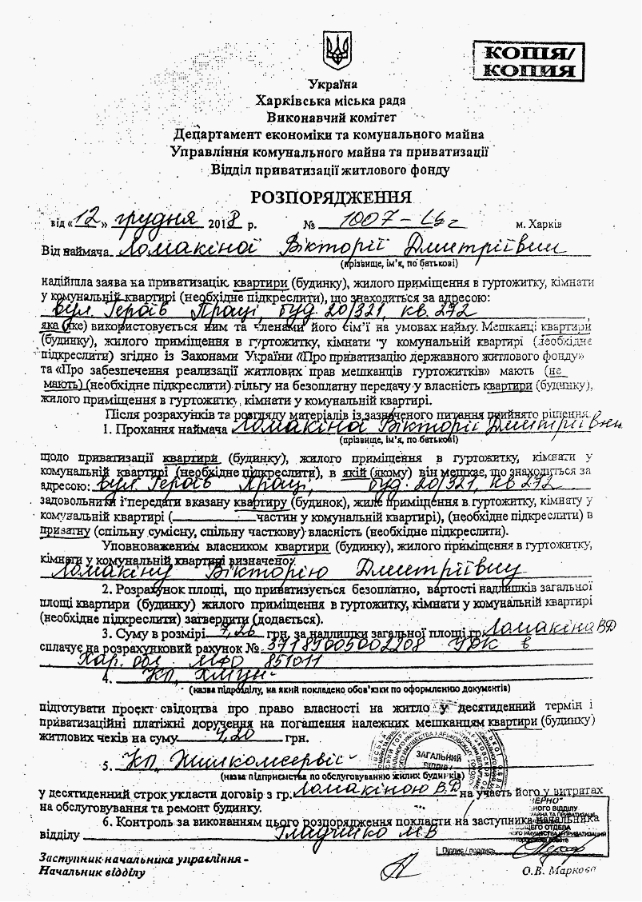 КОПІЯ/
КОПИЯ
Україна
Харківська міська рада
Виконавчий комітет
Департамент економіки та комунального майна
Управління комунального майна та приватизації
Відділ приватизації житлового фонду
РОЗПОРЯДЖЕННЯ
від «12» грудня 2018 р. № 1007- м. Харків
Від наймача Ломакіної Вікторії Дмитріївни
(прізвище, ім'я, по батькові)
надійшла заява на приватизацію квартири (будинку), жилого приміщення в гуртожитку, кімнати
у комунальній квартирі (необхідне підкреслити), що знаходиться за адресою:
вул. Героїв Праці, буд. 20/321, кв. 272
яка (яке) використовується ним та членами його сім'ї на умовах найму. Мешканці квартири
(будинку), жилого приміщення в гуртожитку, кімнати у комунальній квартирі (необхідне
підкреслити) згідно із Законами України «Про приватизацію державного житлового фонду»
та «Про забезпечення реалізації житлових прав мешканців гуртожитків» мають (не
мають) (необхідне підкреслити) пільгу на безоплатну передачу у власність квартири (будинку),
жилого приміщення в гуртожитку, кімнати у комунальній квартирі.
Після розрахунків та розгляду матеріалів із зазначеного питання прийнято рішення
1. Прохання наймача Ломакіної Вікторії Дмитріївни
(прізвище, ім'я, по батькові)
щодо приватизації квартири (будинку), жилого приміщення в гуртожитку, кімнати у
комунальній квартирі (необхідне підкреслити), в якій (якому) він мешкає, що знаходиться за
адресою: вул Героїв Праці, буд. 20/321, кв 272
задовольнити і передати вказану квартиру (будинок), жиле приміщення в гуртожитку, кімнату у
комунальній квартирі ( частин у комунальній квартирі), (необхідне підкреслити) в
приватну (спільну сумісну, спільну часткову) власність (необхідне підкреслити).
Уповноваженим власником квартири (будинку), жилого приміщення в гуртожитку,
кімнати у комунальній квартирі визначено:
Ломакіну Вікторію Дмитріївну
2. Розрахунок площі, що приватизується безоплатно, вартості надлишків загальної
площі квартири (будинку) жилого приміщення в гуртожитку, кімнати у комунальній квартирі
(необхідне підкреслити) затвердити (додається).
3. Суму в розмірі грн. за надлишки загальної площі гр. Ломакіна ВД
сплачує на розрахунковий рахунок № в
Хар. обл. МФО 851011
4. КП
(назва підрозділу, на який покладено обов'язки по оформленню документів)
підготувати проєкт свідоцтва про право власності на житло у десятиденний термін і
приватизаційні платіжні доручення на погашення належних мешканцям квартири (будинку)
житлових чеків на суму грн.
5. КП Жилкомсервіс
(назва підприємства по обслуговуванню жилих будинків)
ЗАГАЛЬНИЙ
у десятиденний строк укласти договір з гр. Ломакіною В.Д на участь його у витратах
на обслуговування та ремонт будинку.
6. Контроль за виконанням цього розпорядження покласти на заступника начальника
відділу
Підпис / подпись
Заступник начальника управління -
Начальник відділу О.В. Маркова